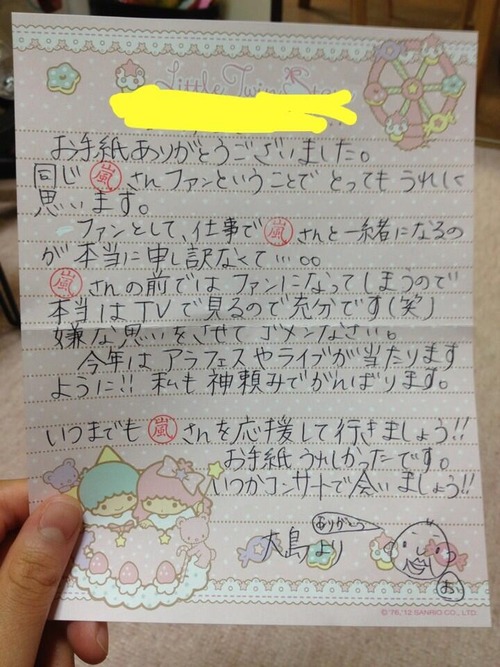 Little Twin Stars
お手紙ありがとうございました。
同じ嵐さんファンということでとってもうれしく
思います。
ファンとして、仕事で嵐さんと一緒になるの
が本当に申し訳なくて…。。
嵐さんの前ではファンになってしまうので
本当はTVで見るので充分です(笑)
嫌な思いをさせてゴメンなさい。
今年はアラフェスやライブが当たります
ように!! 私も神頼みでがんばります。
いつまでも嵐さんを応援して行きましょう!!
お手紙うれしかったです。
いつかコンサートで会いましょう!!
ありがとう
大島より
お
© '76, '12 SANRIO CO., LTD.